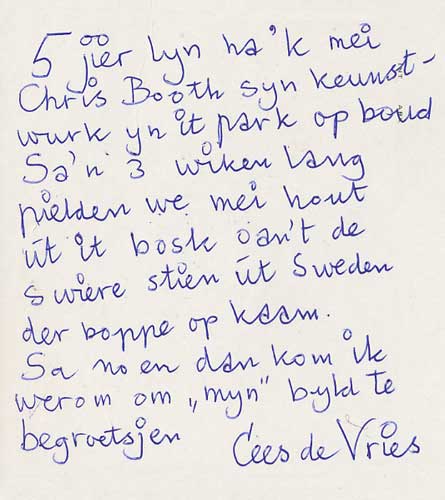 5 jier lyn ha'k mei
Chris Booth syn keunst-
wurk yn it park op boud
Sa'n 3 wiken lang
pielden we mei hout
út it bosk oan't de
swiere stien út Sweden
der boppe op kaam.
Sa no en dan kom ik
werom om „myn" byld te
begroetsjen Cees de Vries